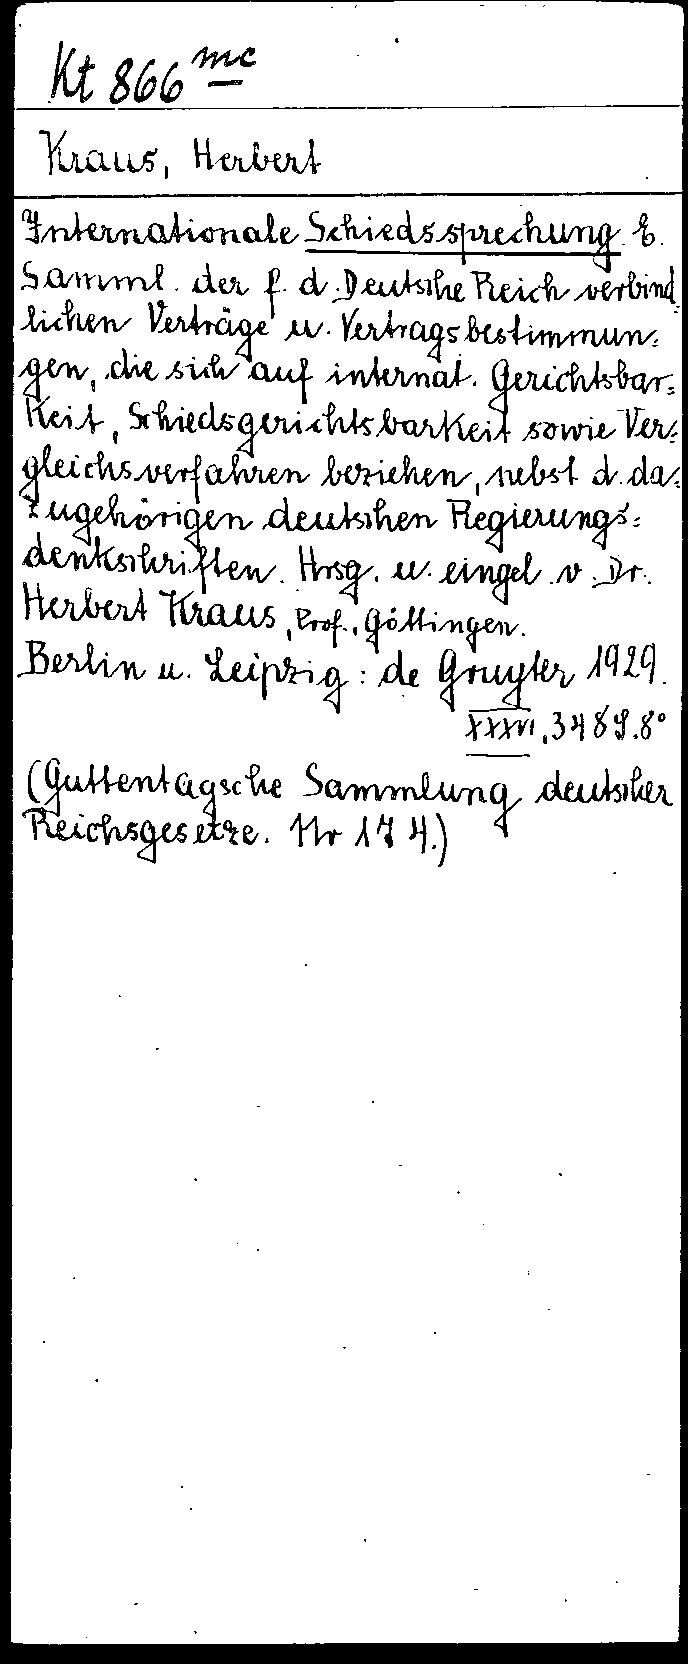 Kt 866 mc
Kraus, Herbert
Internationale Schiedssprechung. E.
Samml. der f. d. Deutsche Reich verbind=
lichen Verträge u. Vertragsbestimmun=
gen, die sich auf internat. Gerichtsbar=
keit, Schiedsgerichtsbarkeit sowie Ver=
gleichsverfahren beziehen, nebst d. da=
zugehörigen deutschen Regierungs=
denkschriften. Hrsg. u. eingel. v. Dr.
Herbert Kraus, Prof., Göttingen.
Berlin u. Leipzig: de Gruyter 1929.
XXXVI, 348 S. 8°
(Guttentagsche Sammlung deutscher
Reichsgesetze. Nr 174.)